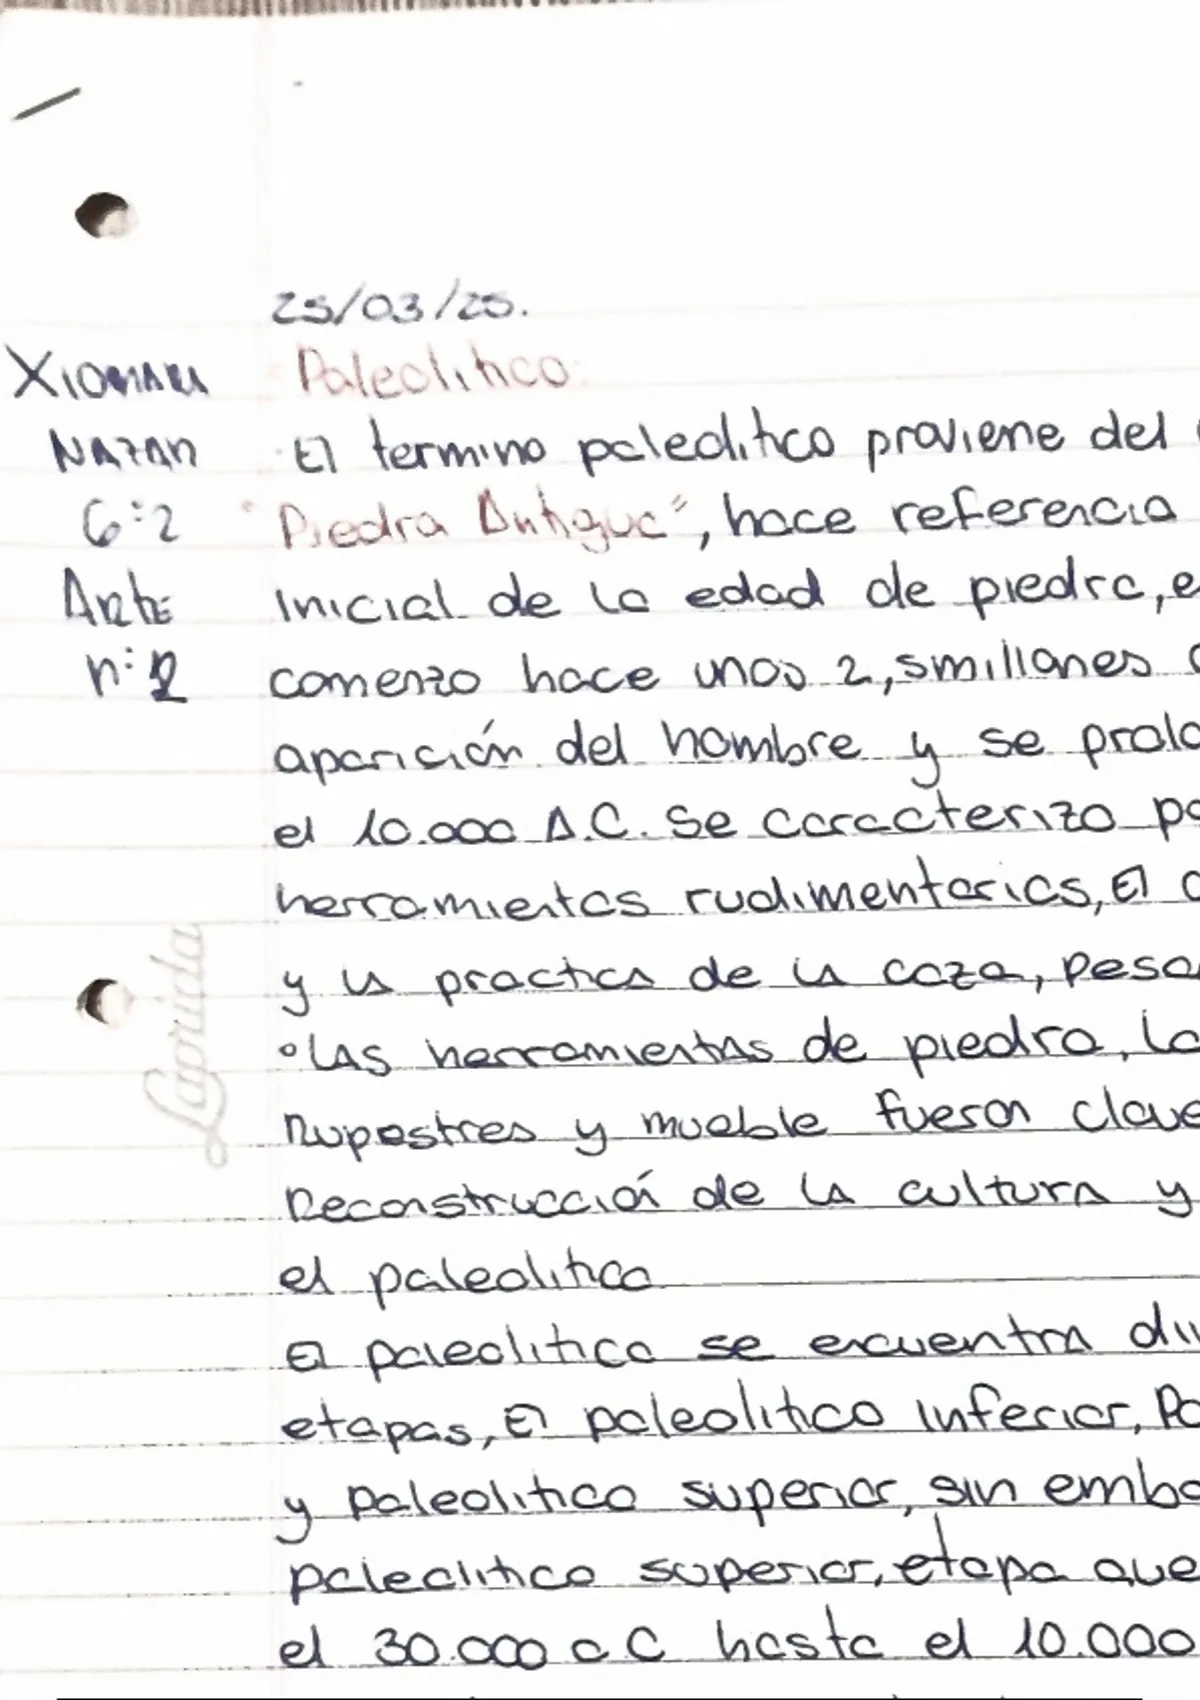 25/03/25.
XIOMARA
Paleolitico
NAZAN
El termino paleolitico proviene del
6:2
"Piedra Antigua", hace referencia
Arte
Inicial de la edad de piedra, e
n:2
comenzo hace unos 2,5millones
aparición del hombre y se prolo
el 10.000 A.C. Se caracterizo po
herramientas rudimentarias, El
y la practica de la caza, pesa
•LAS herramientas de piedra, la
Rupestres y mueble fueron clave
Reconstrucción de la cultura y
el paleolitico
El paleolitico se encuentra div
etapas, El paleolitico inferior, Pa
y paleolitico superior, sin emba
paleolitico superior, etapa que
el 30.000 a C hasta el 10.000
Laprida